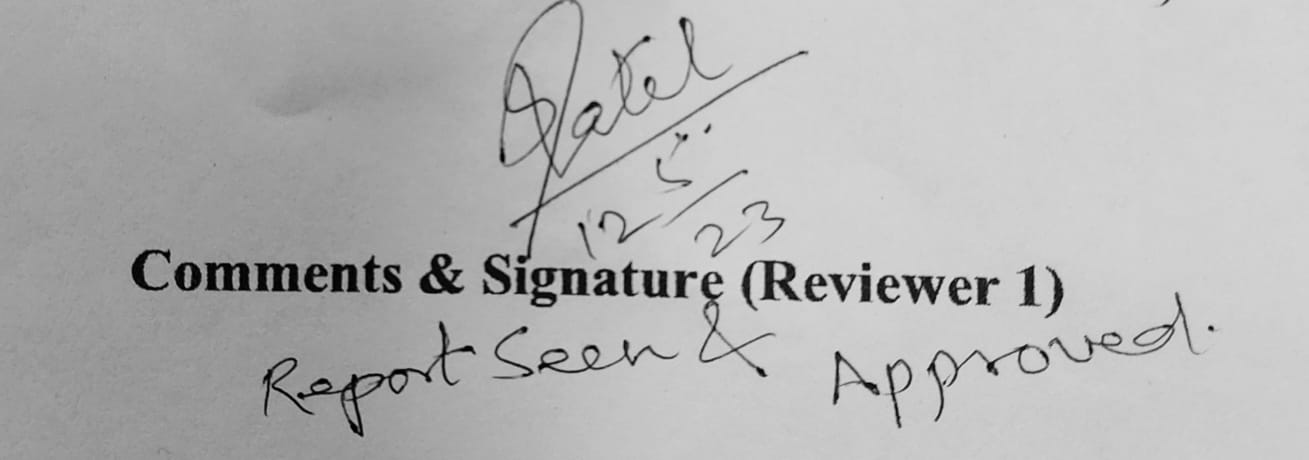 Patel
12/5/23
Comments & Signature (Reviewer 1)
Report Seen & Approved.